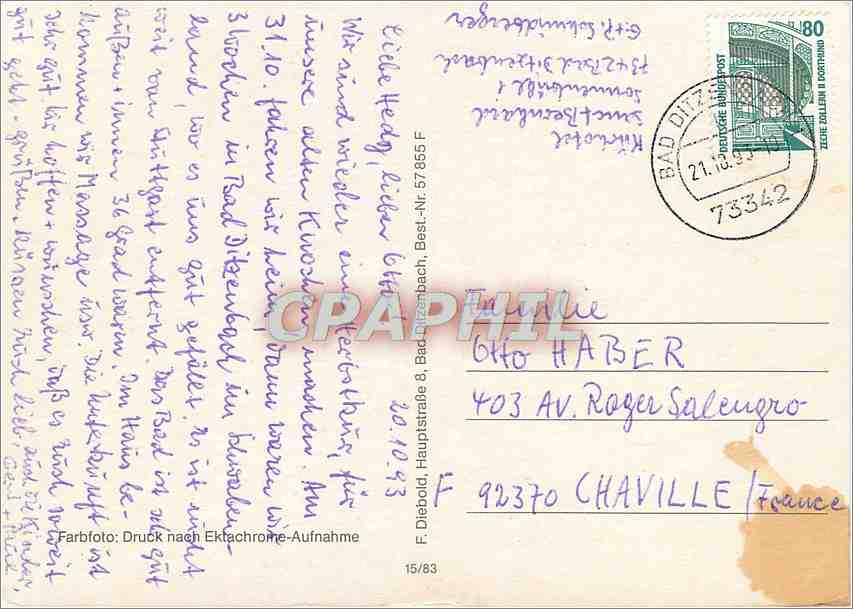 20.10.93
Liebe Hedy, lieber Otto!
Wir sind wieder eine Herbstkur, für
unsere alten Knochen, machen. Am
31.10. fahren wir heim, dann waren wir
3 Wochen in Bad Ditzenbach im Schwaben-
land, wo es uns gut gefällt. Es ist nicht
weit von Stuttgart entfernt. Das Bad ist sehr gut
außen + innen 36 Grad waren. Im Haus be-
kommen wir Massage usw. Die Unterkunft ist
sehr gut. Wir hoffen + wünschen, daß es Euch soweit
gut geht. grüßen + küssen Euch lieb auch die Kinder,
Gerd +
G + R. Schmidberger
7342 Bad Ditzenbach
Sonnenbühl 1
Sanct Bernhard
Kurhotel
80
DEUTSCHE BUNDESPOST
ZECHE ZOLLERN II DORTMUND
BAD DITZE
21.10.93-10
73342
CPAPHIL
Familie
Otto HABER
403 AV. Roger Salengro
F 92370 CHAVILLE / France
F. Diebold, Hauptstraße 8, Bad Ditzenbach, Best.-Nr. 57 855 F
Farbfoto: Druck nach Ektachrome-Aufnahme
15/83